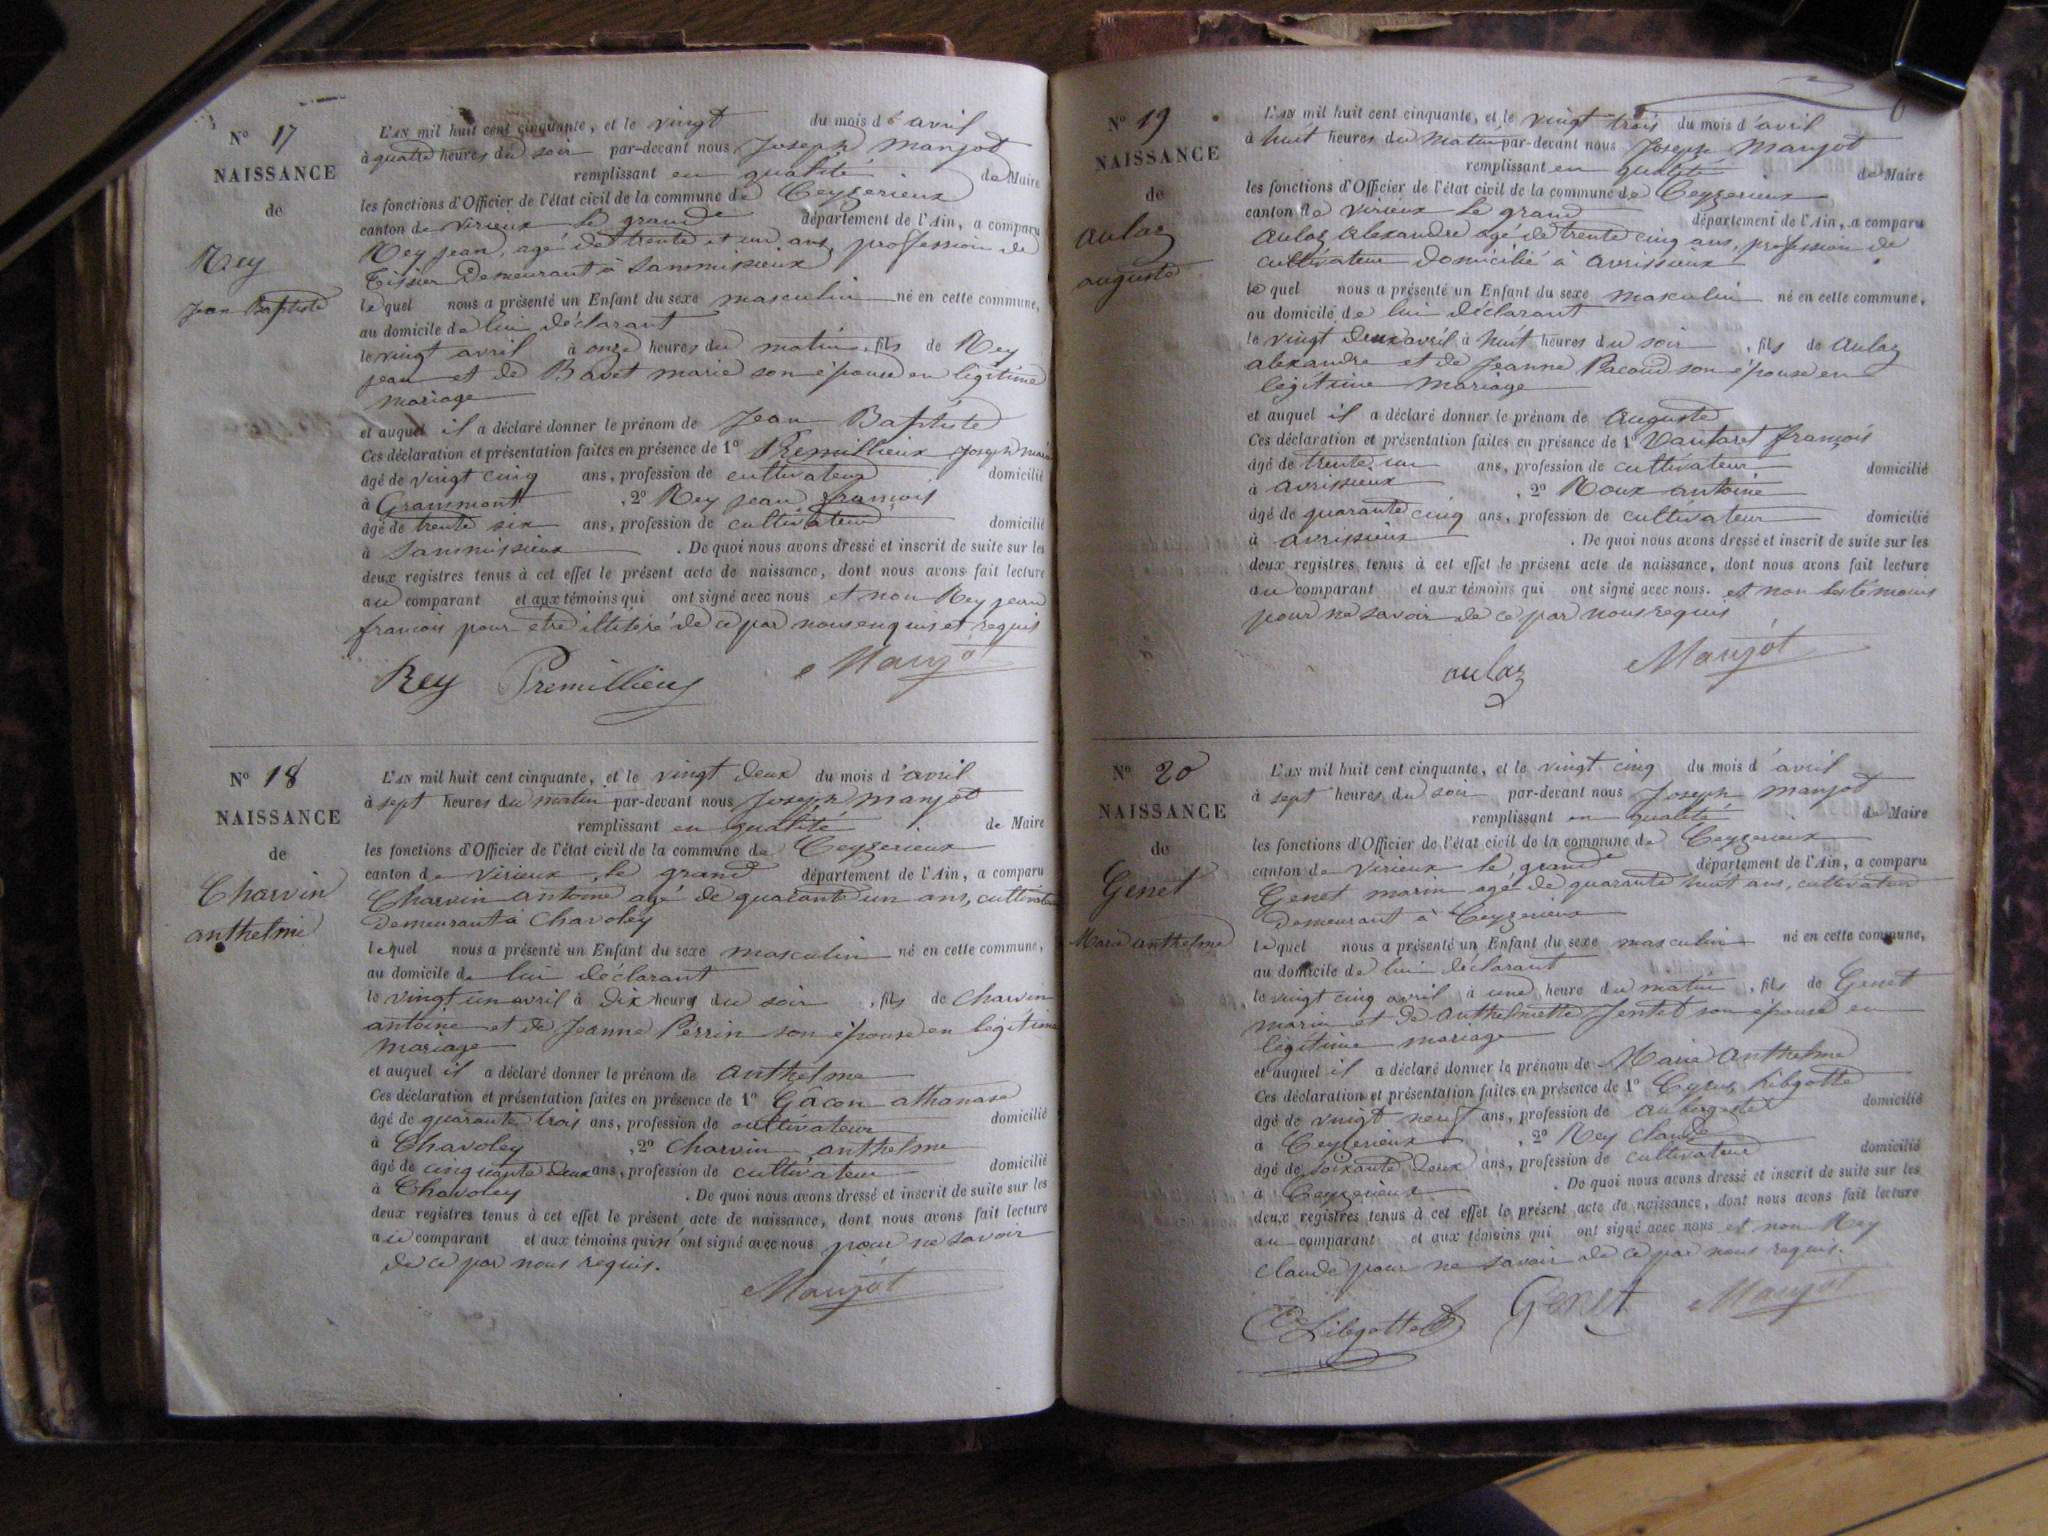 N° 17
NAISSANCE
de
Rey
Jean Baptiste
L'AN mil huit cent cinquante, et le vingt du mois d'avril
à quatre heures du soir par-devant nous Joseph Manjot
remplissant en qualité de Maire
les fonctions d'Officier de l'état civil de la commune de Ceyzerieux
canton de virieux le grand département de l'Ain, a comparu
Rey jean, agé de trente et un ans, profession de
Tissier Demeurant à Sammissieux
lequel nous a présenté un Enfant du sexe masculin né en cette commune,
au domicile de lui déclarant
le vingt avril à onze heures du matin, fils de Rey
jean et de Bavet marie son épouse en légitime
mariage
et auquel il a déclaré donner le prénom de Jean Baptiste
Ces déclaration et présentation faites en présence de 1° Premillieux Joseph marie
âgé de vingt cinq ans, profession de cultivateur domicilié
à Grammont, 2° Rey jean françois
âgé de trente six ans, profession de cultivateur domicilié
à Sammissieux. De quoi nous avons dressé et inscrit de suite sur les
deux registres tenus à cet effet le présent acte de naissance, dont nous avons fait lecture
au comparant et aux témoins qui ont signé avec nous et non Rey jean
francois pour etre illitéré de ce par nous enquis et requis
Rey Premillieux Manjot
N° 18
NAISSANCE
de
Charvin
anthelme
L'AN mil huit cent cinquante, et le vingt deux du mois d'avril
à sept heures du matin par-devant nous Joseph Manjot
remplissant en qualité de Maire
les fonctions d'Officier de l'état civil de la commune de Ceyzerieux
canton de virieux le grand département de l'Ain, a comparu
Charvin antoine agé de quarante un ans, cultivateur
Demeurant à Chavoley
lequel nous a présenté un Enfant du sexe masculin né en cette commune,
au domicile de lui déclarant
le vingt un avril à Dix heures du soir, fils de charvin
antoine et de Jeanne Perrin son épouse en légitime
mariage
et auquel il a déclaré donner le prénom de anthelme
Ces déclaration et présentation faites en présence de 1° Gacon athanase
âgé de quarante trois ans, profession de cultivateur domicilié
à Chavoley, 2° charvin anthelme
âgé de cinquante deux ans, profession de cultivateur domicilié
à Chavoley. De quoi nous avons dressé et inscrit de suite sur les
deux registres tenus à cet effet le présent acte de naissance, dont nous avons fait lecture
au comparant et aux témoins qui n'ont signé avec nous pour ne savoir
de ce par nous requis.
Manjot
6
N° 19
NAISSANCE
de
aulaz
auguste
L'AN mil huit cent cinquante, et le vingt trois du mois d'avril
à huit heures du matin par-devant nous Joseph Manjot
remplissant en qualité de Maire
les fonctions d'Officier de l'état civil de la commune de Ceyzerieux
canton de virieux le grand département de l'Ain, a comparu
aulaz alexandre agé de trente cinq ans, profession de
cultivateur domicilié à avrissieux
lequel nous a présenté un Enfant du sexe masculin né en cette commune,
au domicile de lui déclarant
le vingt deux avril à huit heures du soir, fils de aulaz
alexandre et de Jeanne Pacoud son épouse en
légitime mariage
et auquel il a déclaré donner le prénom de auguste
Ces déclaration et présentation faites en présence de 1° Vautaret françois
âgé de trente un ans, profession de cultivateur domicilié
à avrissieux, 2° Roux antoine
âgé de quarante cinq ans, profession de cultivateur domicilié
à avrissieux. De quoi nous avons dressé et inscrit de suite sur les
deux registres tenus à cet effet le présent acte de naissance, dont nous avons fait lecture
au comparant et aux témoins qui ont signé avec nous. et non les témoins
pour ne savoir de ce par nous requis
aulaz Manjot
N° 20
NAISSANCE
de
Genet
Marie anthelme
L'AN mil huit cent cinquante, et le vingt cinq du mois d'avril
à sept heures du soir par-devant nous Joseph manjot
remplissant en qualité de Maire
les fonctions d'Officier de l'état civil de la commune de Ceyzerieux
canton de virieux le grand département de l'Ain, a comparu
Genet marin agé de quarante huit ans, cultivateur
demeurant à Ceyzerieux
lequel nous a présenté un Enfant du sexe masculin né en cette commune,
au domicile de lui déclarant
le vingt cinq avril à une heure du matin, fils de Genet
marin et de anthelmette Jentet son épouse en
légitime mariage
et auquel il a déclaré donner le prénom de Marie anthelme
Ces déclaration et présentation faites en présence de 1° Cyrus Libgotte
âgé de vingt neuf ans, profession de aubergiste domicilié
à Ceyzerieux, 2° Rey claude
âgé de soixante deux ans, profession de cultivateur domicilié
à Ceyzerieux. De quoi nous avons dressé et inscrit de suite sur les
deux registres tenus à cet effet le présent acte de naissance, dont nous avons fait lecture
au comparant et aux témoins qui ont signé avec nous et non Rey
claude pour ne savoir de ce par nous requis.
Libgotte Genet Manjot